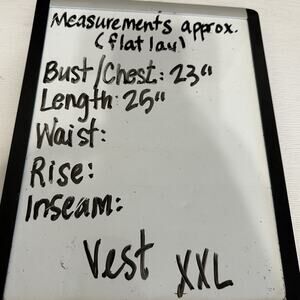 Measurements approx.
(flat lay)
Bust/Chest: 23"
Length: 25"
Waist:
Rise:
Inseam:
Vest XXL